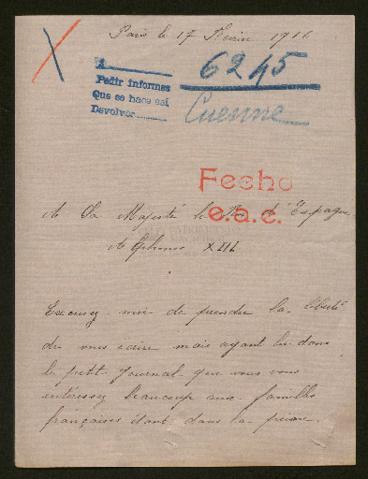 Paris le 17 Février 191
6245
1
Pedir informes
Que se hace así
Devolver
Cuenne
Fecho
e.a.c.
A Sa Majesté le Roi d'Espagne
Alphonse XIII
Excusez moi de prendre la liberté
de vous écrire mais ayant lu dans
le petit Journal que vous vous
intéressez beaucoup aux familles
françaises étant dans la peine.